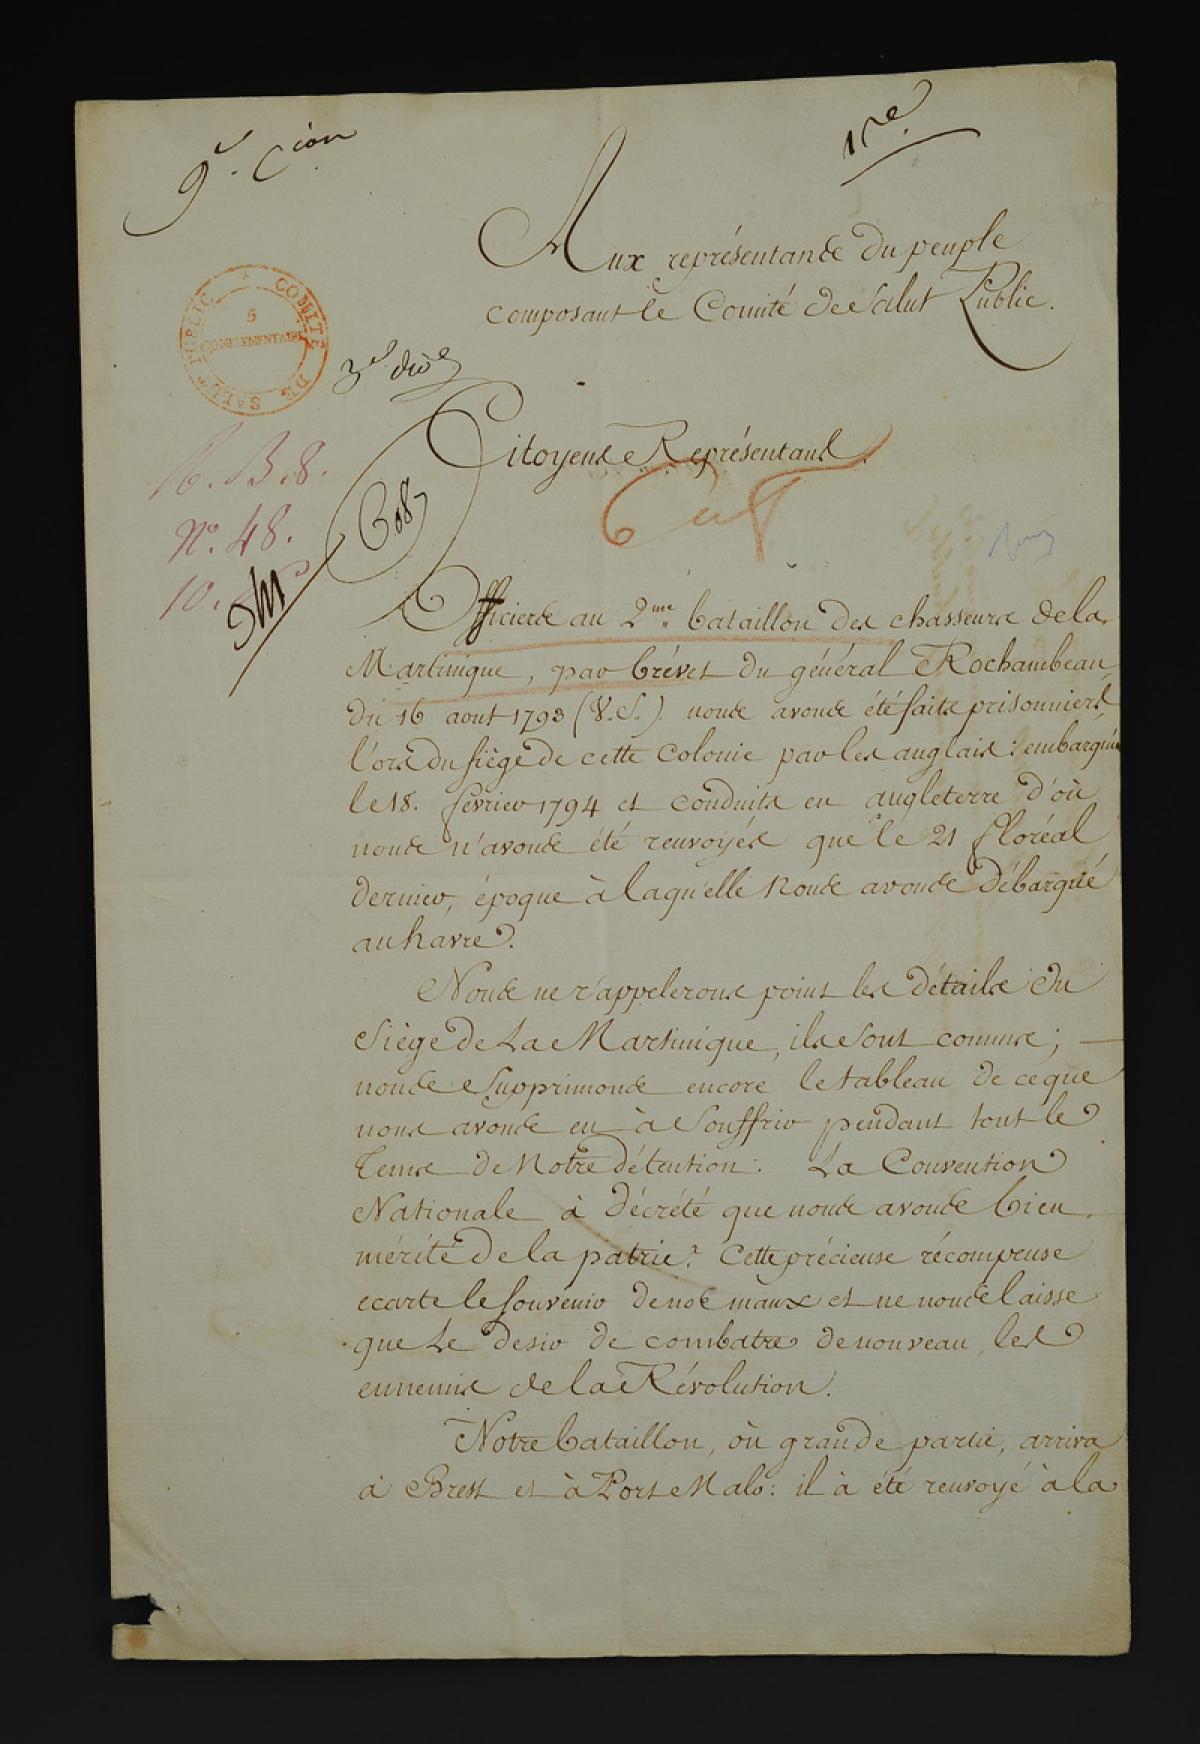 9e. Cion
1re
Aux représentants du peuple
composant le Comité de Salut Public.
COMITÉ DE SALUT PUBLIC
5
COMPLEMENTAIRE
3e divon
Citoyens Représentans.
B. 8.
N°. 48.
10.
Officiers au 2me bataillon des chasseurs de la
Martinique, par brévet du général Rochambeau
du 16 aout 1793 (V.S.) nous avons été faits prisonniers
l'ors du siège de cette Colonie par les anglais: embarqués
le 18. février 1794 et conduits en angleterre d'où
nous n'avons été renvoyés que le 21 floréal
dernier, époque à laqu'elle nous avons débarqué
au havre.
Nous ne r'appelerons point les détails du
Siège de La Martinique, ils sont connus;
nous supprimons encore le tableau de ce que
nous avons eu à souffrir pendant tout le
tems de Notre détention. La Convention
Nationale à décrété que nous avons bien
mérité de la patrie. Cette précieuse récompense
ecarte le souvenir de nos maux et ne nous laisse
que le desir de combatre de nouveau les
ennemis de la Révolution.
Notre bataillon, ou grande partie, arriva
à Brest et à Port Malo: il à été renvoyé à la